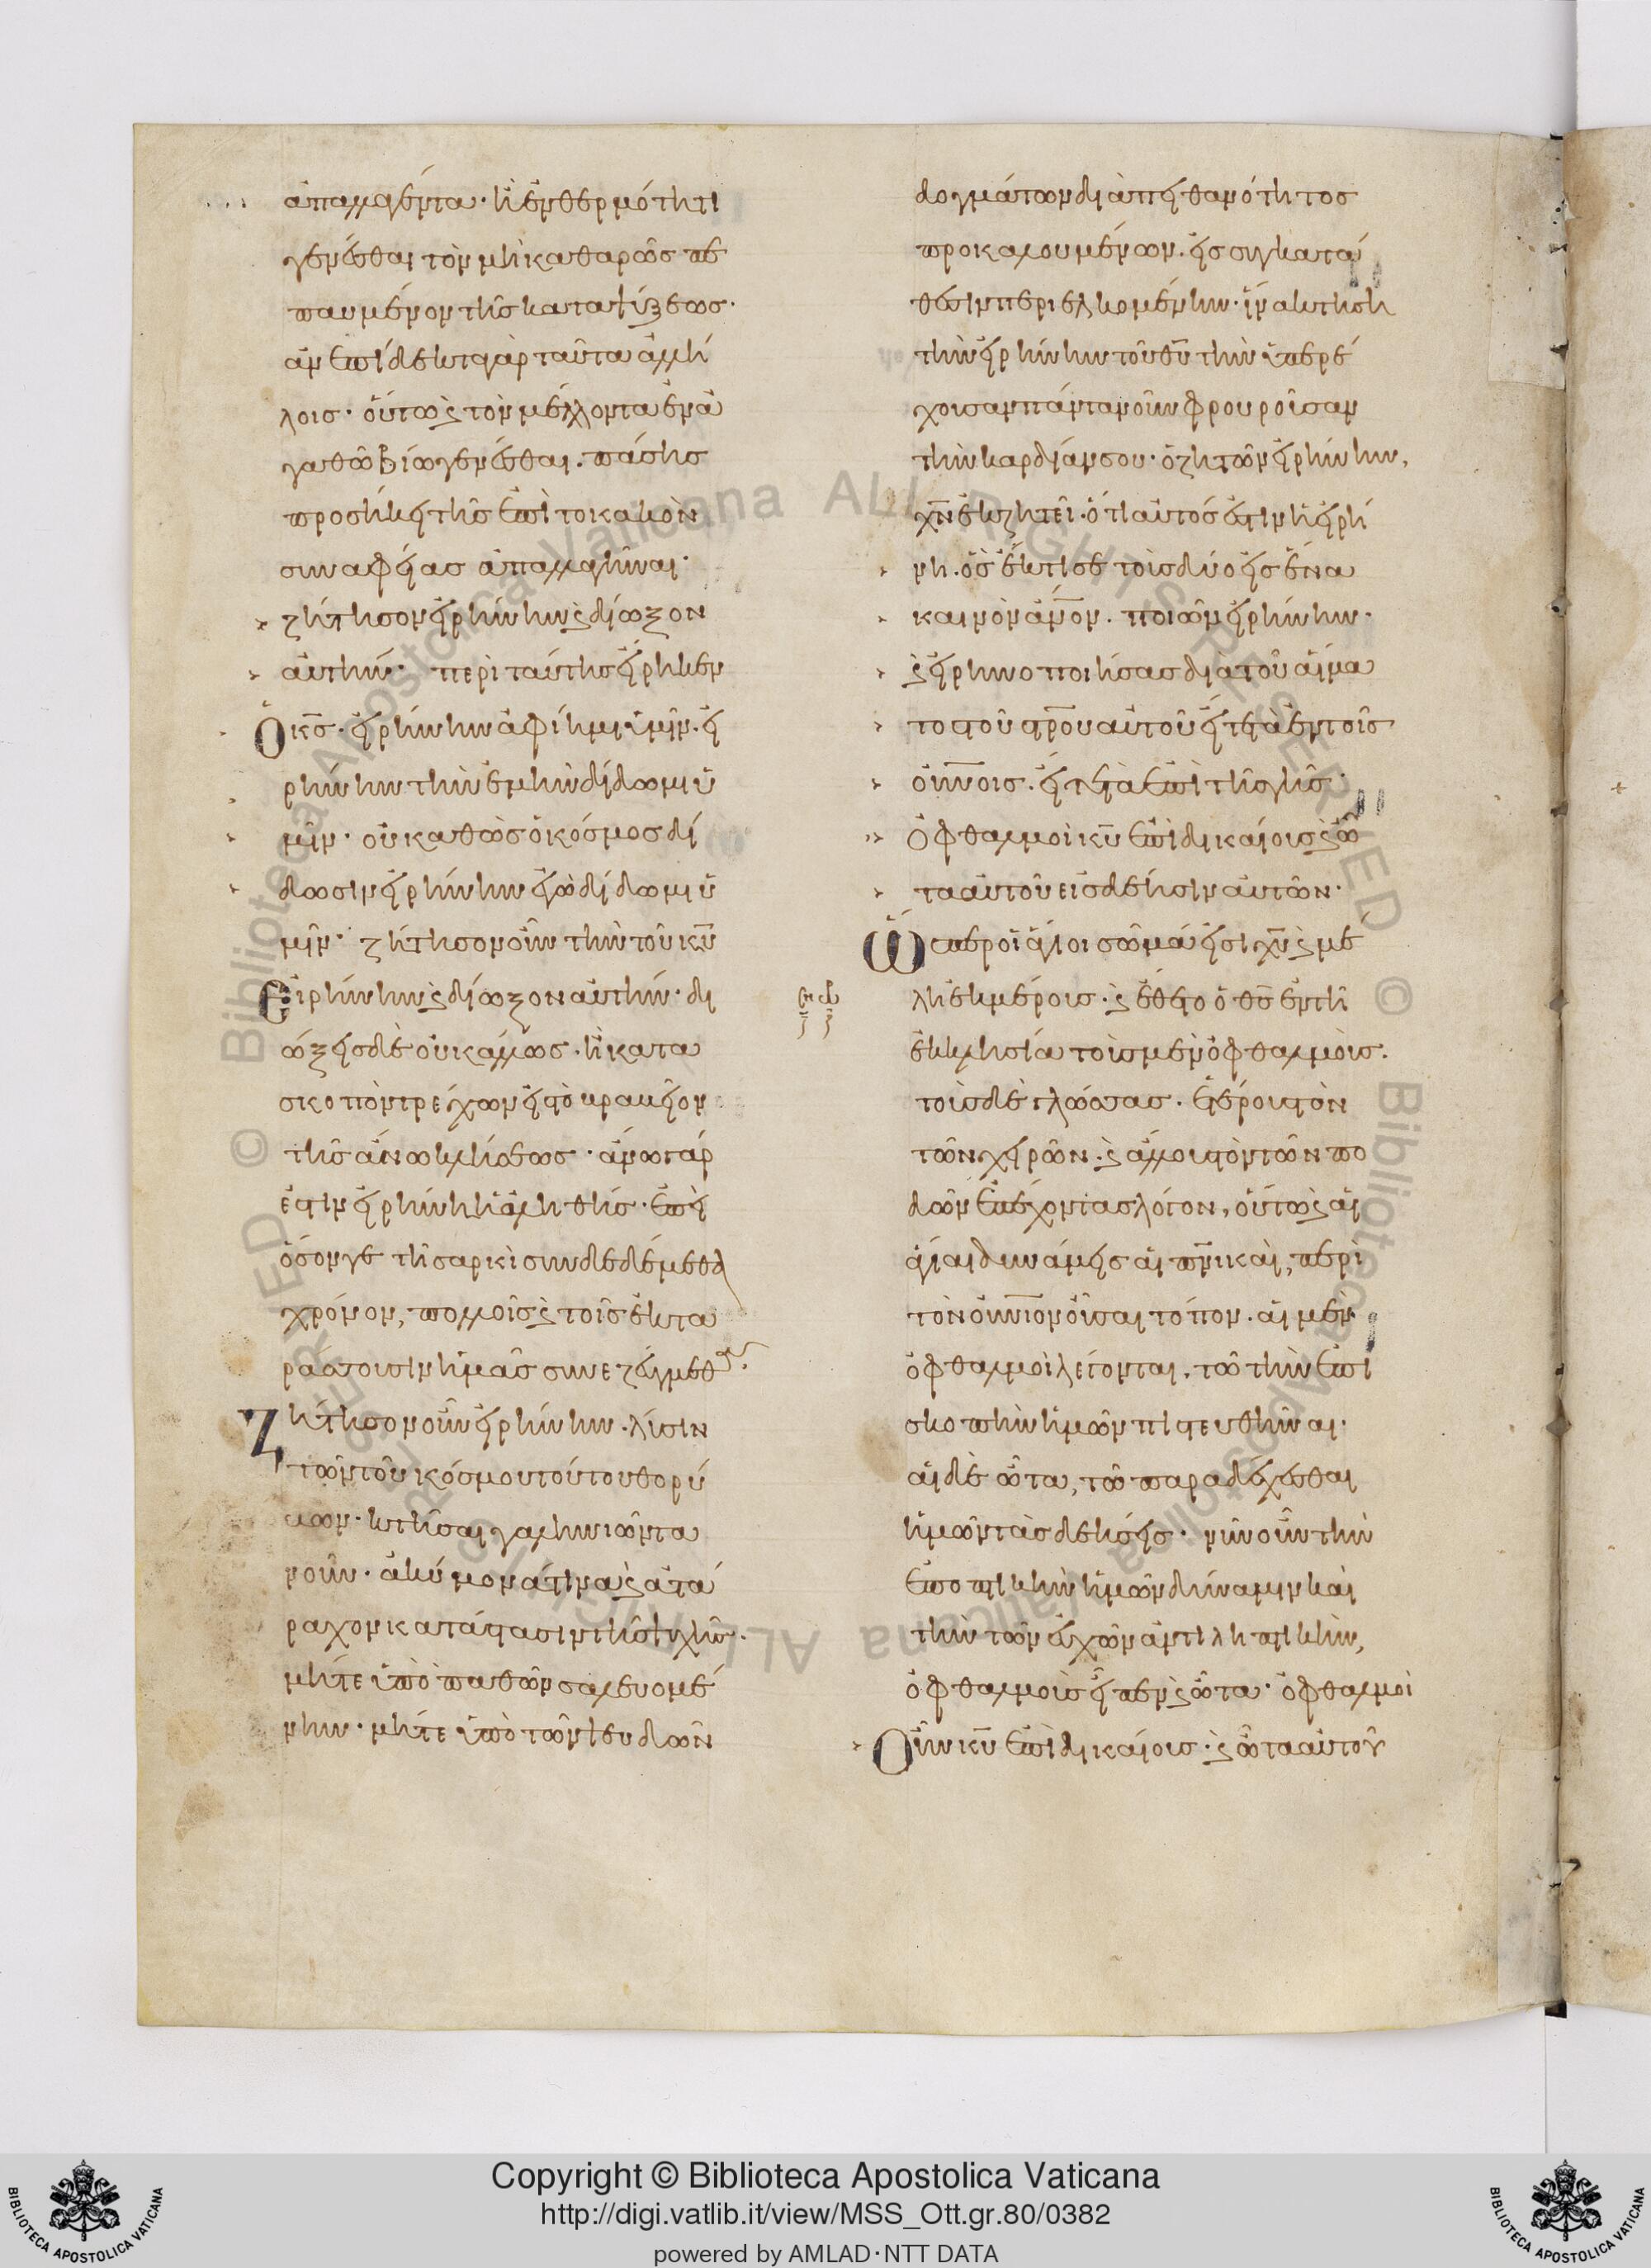 ἀπαλλαγέντα· ἢ ἐν θερμότητι
γενέσθαι τὸν μὴ καθαρῶς πε
παυμένον τῆς καταψύξεως·
ἀνεπίδεκτα γὰρ ταῦτα ἀλλή
λοις· οὕτως ϗ τὸν μέλλοντα ἐν ἀ
γαθῶ βίω γενέσθαι. πάσης
προσήκει τῆς ἐπὶ το κακὸν
συναφείας ἀπαλλαγῆναι·
ζήτησον εἰρήνην ϗ δίωξον
αὐτήν· περὶ ταύτης εἴρηκεν
Ὁ κς· εἰρήνην ἀφίημι ὑμῖν. εἰ
ρήνην τὴν ἐμὴν δίδωμι ὑ
μῖν· οὐ καθὼς ὁ κόσμος δί
δωσιν εἰρήνην ἐγὼ δίδωμι ὑ
μῖν· ζήτησον οὖν τὴν τοῦ κυ
Εἰρήνην ϗ δίωξον αὐτήν· δι
ώξεις δὲ οὐκ ἄλλως. ἢ κατα
σκοπὸν τρέχων εἰς τὸ βραβεῖον
τῆς ἄνω κλήσεως· ἄνω γάρ
ἐστιν εἰρήνη ἡ ἀληθής· ἐπεὶ
ὅσον γε τῆ σαρκὶ συνδεδέμεθα
χρόνον, πολλοῖς ϗ τοῖς ἐκτα
ράσσουσιν ἡμᾶς συνεζεύγμεθα.
Ζήτησον οὖν εἰρήνην. λύσιν
τῶν τοῦ κόσμου τούτου θορύ
βων· κτῆσαι γαληνιῶντα
νοῦν· ἀκύμονά τινα ϗ ἀτά
ραχον κατάστασιν τῆς ψυχῆς.
μήτε ὑπὸ παθῶν σαλευομέ
νην· μήτε ὑπὸ τῶν ψευδῶν
δογμάτων διὰ πειθανότητος
προκαλουμένων. εἰς συγκατά
θεσιν περιελκομένην· ἵνα κτήση
τὴν εἰρήνην τοῦ θυ τὴν ὑπερέ
χουσαν πάντα νοῦν φρουροῦσαν
τὴν καρδίαν σου· ὁ ζητῶν εἰρήνην,
χν ἐκζητεῖ· ὅτι αὐτός ἐστιν ἡ εἰρή
νη. ὃς ἔκτισε τοὺς δύο εἰς ἕνα
καινὸν ανον. ποιῶν εἰρήνην·
ϗ εἰρηνοποιήσας διὰ τοῦ αἵμα
τος τοῦ στρου αὐτοῦ εἴτε τὰ ἐν τοῖς
οὐνοις. εἴτε τὰ ἐπὶ τῆς γῆς·
Ὀφθαλμοὶ κυ ἐπὶ δικαίους ϗ ὦ
τα αὐτοῦ εἰς δέησιν αὐτῶν·
Ὥσπερ οἱ ἅγιοι σῶμά εἰσι χυ ϗ μέ
λη ἐκ μέρους· ϗ ἔθετο ὁ θς ἐν τῆ
ἐκκλησία τοὺς μὲν ὀφθαλμούς.
τοὺς δὲ γλώσσας. ἑτέρους τὸν
τῶν χειρῶν. ϗ ἄλλους τὸν τῶν πο
δῶν ἐπέχοντας λόγον, οὕτως ϗ αἱ
ἅγιαι δυνάμεις αἱ πνικαὶ, περὶ
τὸν οὐνιον οὖσαι τόπον. αἱ μὲν
ὀφθαλμοὶ λέγονται. τῶ τὴν ἐπι
σκοπὴν ἡμῶν πιστευθῆναι·
αἱ δὲ ὦτα, τῶ παραδέχεσθαι
ἡμῶν τὰς δεήσεις· νῦν οὖν τὴν
ἐποπτικὴν ἡμῶν δύναμιν καὶ
τὴν τῶν εὐχῶν ἀντιληπτικὴν,
ὀφθαλμοὺς εἶπεν ϗ ὦτα· ὀφθαλμοὶ
Οὖν κυ ἐπὶ δικαίους· ϗ ὦτα αὐτοῦ
Copyright © Biblioteca Apostolica Vaticana
http://digi.vatlib.it/view/MSS_Ott.gr.80/0382
powered by AMLAD·NTT DATA
BIBLIOTECA APOSTOLICA VATICANA
BIBLIOTECA APOSTOLICA VATICANA